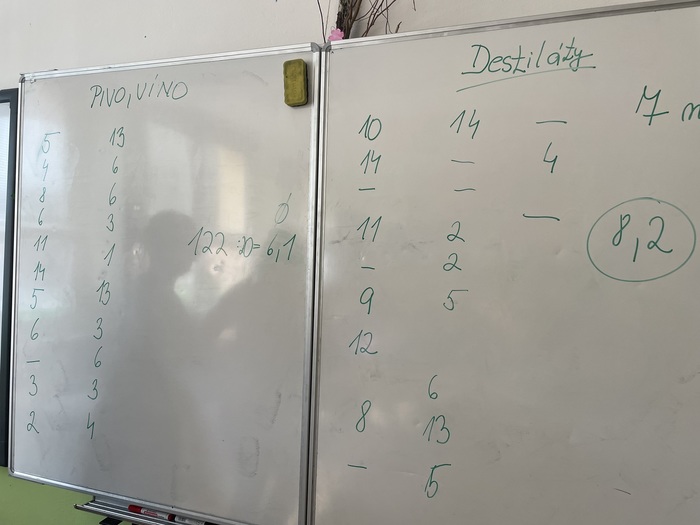 PIVO, VÍNO
5 13
4 6
8 6
6 3
11 1
14 13
5 3
6 6
— 3
3 4
2
Ó
122 : 20 = 6,1
Destiláty
10 14 —
14 — 4
— —
11 2 —
— 2
9 5
12
6
8 13
— 5
7
8,2